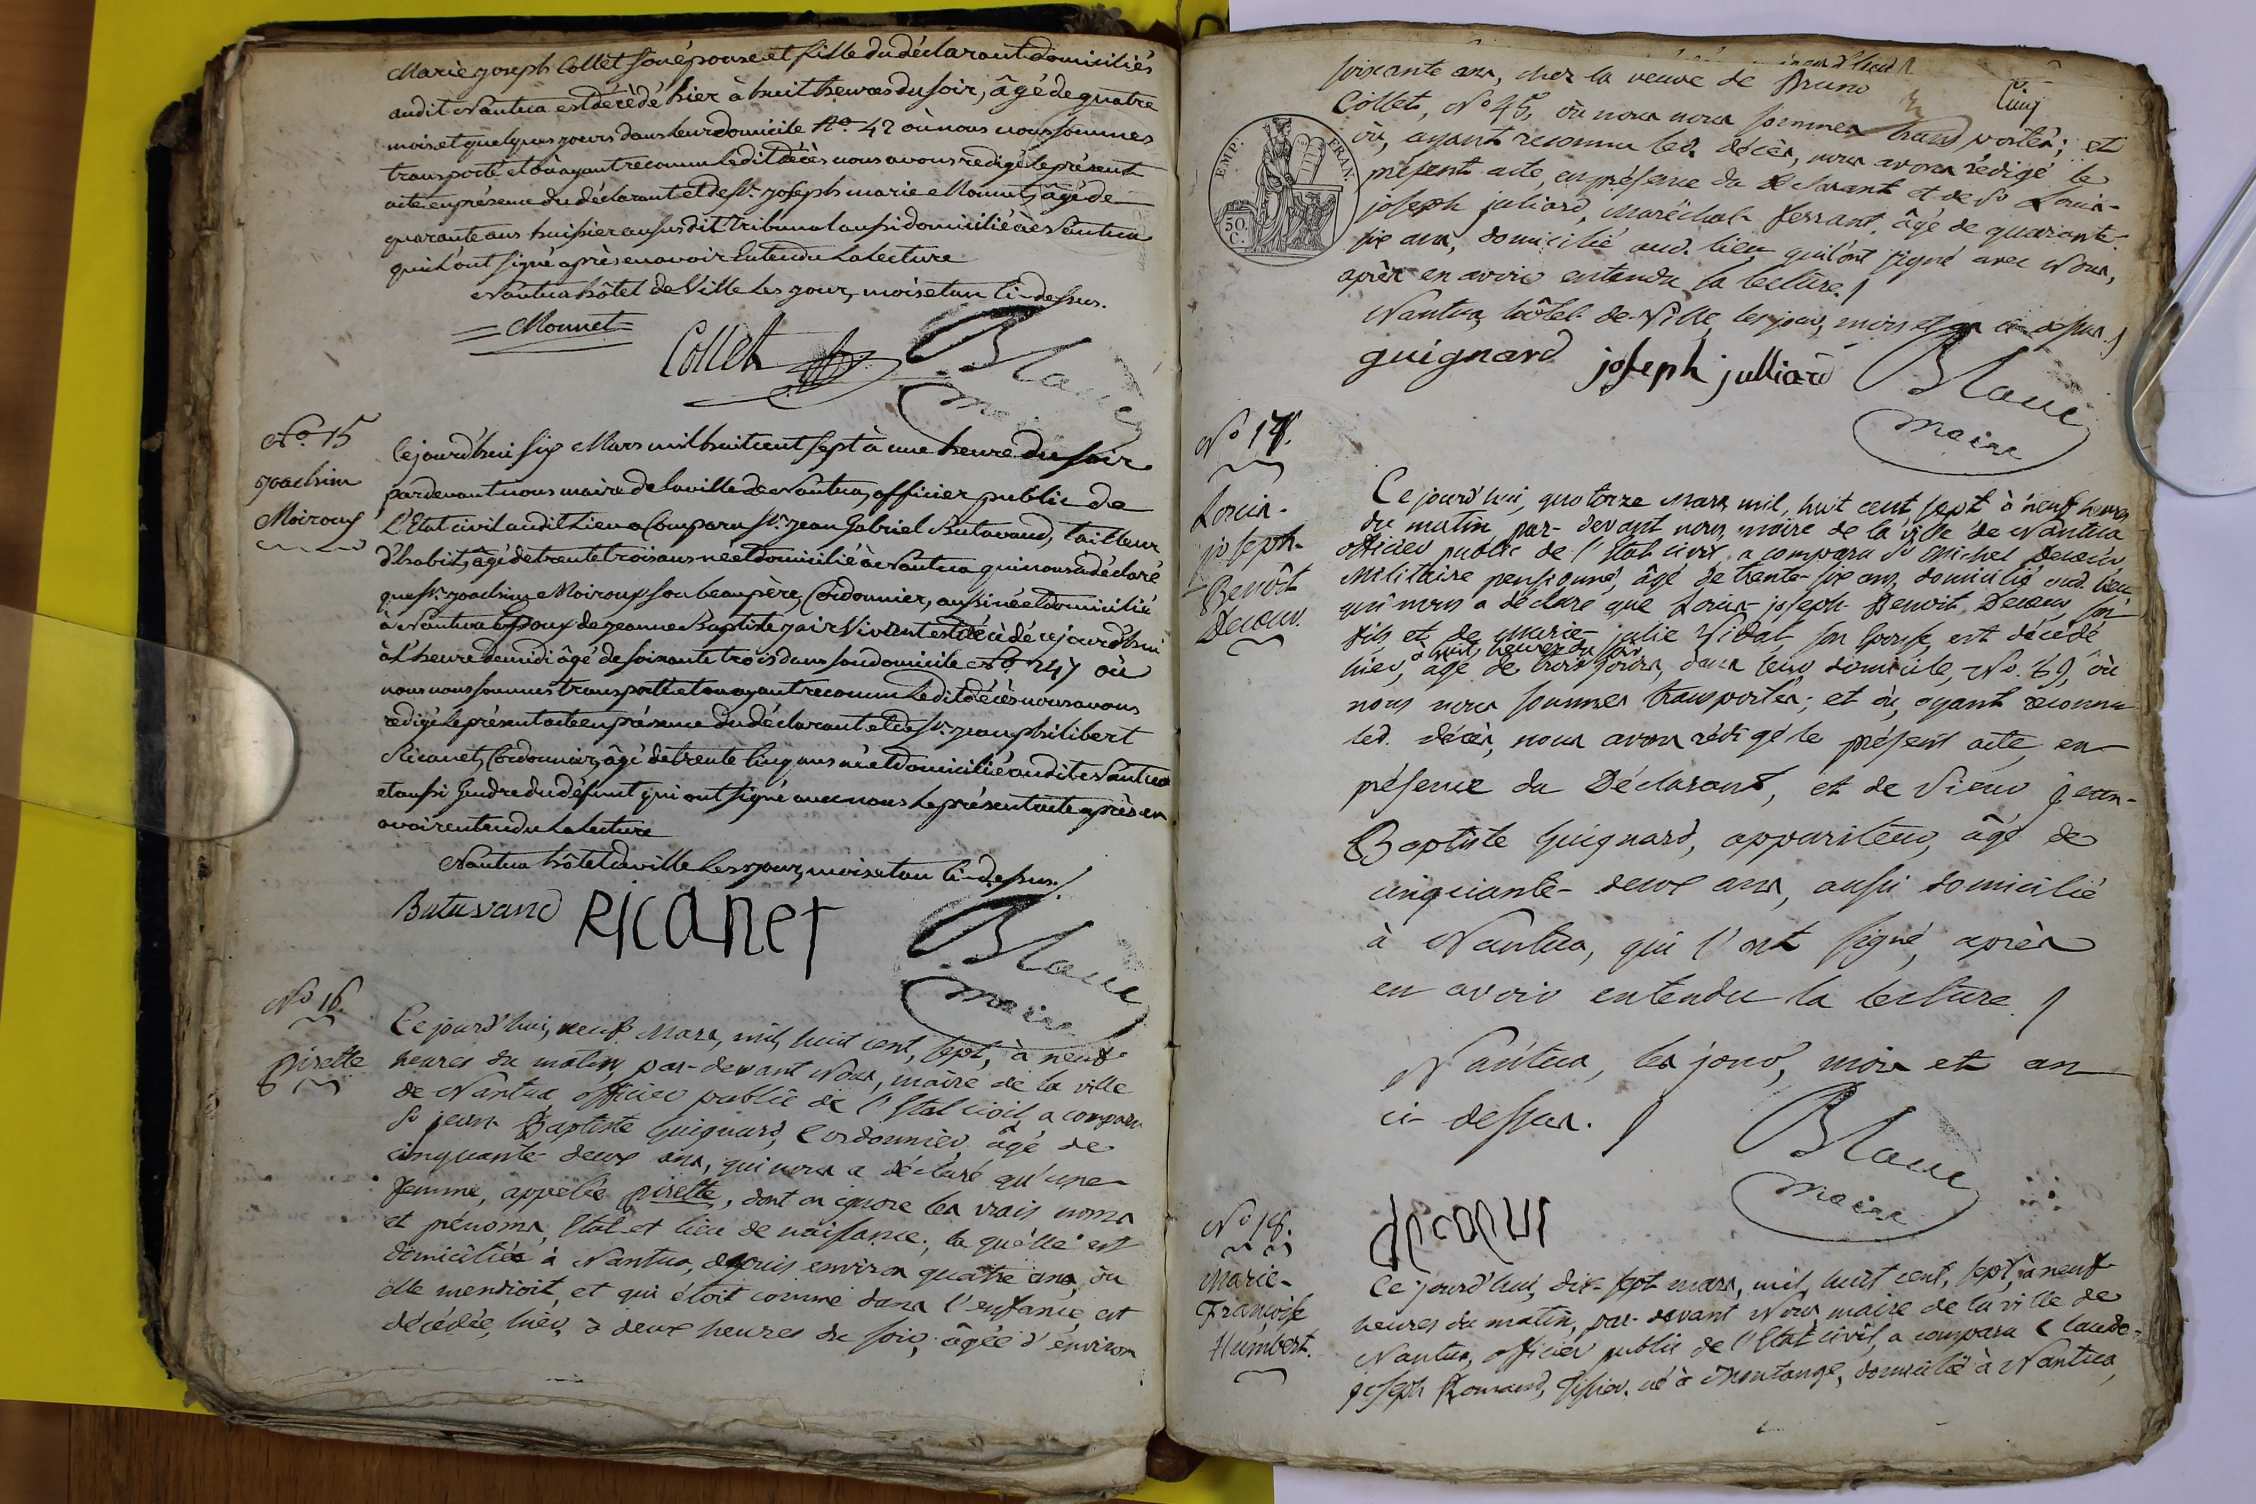 Marie joseph Collet son épouse et fille du déclarant domiciliés
audit Nantua est décédé hier à huit heures du soir, âgé de quatre
mois et quelques jours dans leur domicile No. 42 où nous nous sommes
transporté et où ayant reconnu ledit décès nous avons rédigé le présent
acte en présence du déclarant et de Sr. joseph marie Monnet, âgé de
quarante ans huissier au susdit tribunal aussi domicilié à Nantua
qui l'ont signé après en avoir Entendu la lecture
Nantua hôtel de Ville les jour, mois et an Ci-dessus.
Monnet
Collet
Blanc
maire
No. 15
joachim
Moiroux
Cejourd'hui six Mars mil huit cent sept à une heure du soir
pardevant nous maire de la ville de Nantua, officier public de
l'Etat civil audit Lieu a Comparu Sr. jean Gabriel Butavand, tailleur
d'habits, âgé de trente trois ans né et domicilié à Nantua qui nous a déclaré
que Sr. joachim Moiroux son beau père, Cordonnier, aussi né et domicilié
à Nantua Epoux de jeanne Baptiste jair Vivient est décédé cejourd'hui
à l'heure de midi âgé de soixante trois dans son domicile No. 247 où
nous nous sommes transporté et où ayant reconnu ledit décès nous avons
rédigé le présent acte en présence du déclarant et de Sr. jean philibert
Ricanet, Cordonnier, âgé de trente Cinq ans né et domicilié audit Nantua
et aussi Gendre du défunt qui ont signé avec nous le présent acte après en
avoir entendu la lecture
Nantua hôtel de ville les jour, mois et an Ci-dessus.
Butavand
Ricanet
Blanc
maire
No 16.
pisette
Ce jourd'hui, neuf Mars, mil, huit cent, sept, à neuf
heures du matin, par-devant Nous, maire de la ville
de Nantua officier public de l'Etat civil, a comparu
Sr jean-Baptiste Guignard, Cordonnier, âgé de
cinquante-deux ans, qui nous a déclaré qu'une
femme, appelée pisette, dont on ignore les vrais noms
et prénoms, Etat et lieu de naissance; la quelle est
domiciliée à Nantua, depuis environ quatre ans, où
elle mendioit, et qui étoit comme dans l'enfance, est
décédée, hier, à deux heures du soir, âgée d'environ
soixante ans, chez la veuve de Bruno
Collet, No 45, où nous nous sommes transportés; et
où, ayant reconnu led. décès, nous avons rédigé le
présent acte, en présence du Déclarant et de Sr Louis-
joseph juliard, Maréchal-ferrant, âgé de quarante-
six ans, domicilié aud. lieu, qui l'ont signé avec Nous,
après en avoir entendu la lecture./
Nantua, hôtel-de-Ville, les jour, mois et an ci-dessus./
EMP. FRAN.
50. C.
guignard
joseph julliard
Blanc
maire
No 17.
Louis-
joseph-
Benoît
Decœur.
Ce jourd'hui, quatorze Mars, mil, huit cent, sept à neuf heures
du matin, par-devant nous, maire de la ville de Nantua
officier public de l'Etat civil, a comparu Sr Michel Decœur,
Militaire pensionné, âgé de trente-six ans, domicilié aud. lieu,
qui nous a déclaré que Louis-joseph-Benoit Decœur, son
fils et de Marie-julie Vidal, son Epouse, est décédé
à huit heures du soir
hier, âgé de trois jours, dans leur domicile, No. 69, où
nous nous sommes transportés; et où, ayant reconnu
led. décès, nous avons rédigé le présent acte, en
présence du Déclarant, et de Sieur Jean-
Baptiste Guignard, appariteur, âgé de
cinquante-deux ans, aussi domicilié
à Nantua, qui l'ont signé, après
en avoir entendu la lecture./
Nantua, les jour, mois et an
ci-dessus./
Blanc
maire
No 18.
Marie-
Francoise
Humbert.
Ce jourd'hui, dix-sept mars, mil, huit cent, sept, à neuf
heures du matin, par-devant Nous maire de la ville de
Nantua, officier public de l'Etat civil, a comparu Claude-
joseph Romand, né à Montange, domicilié à Nantua,